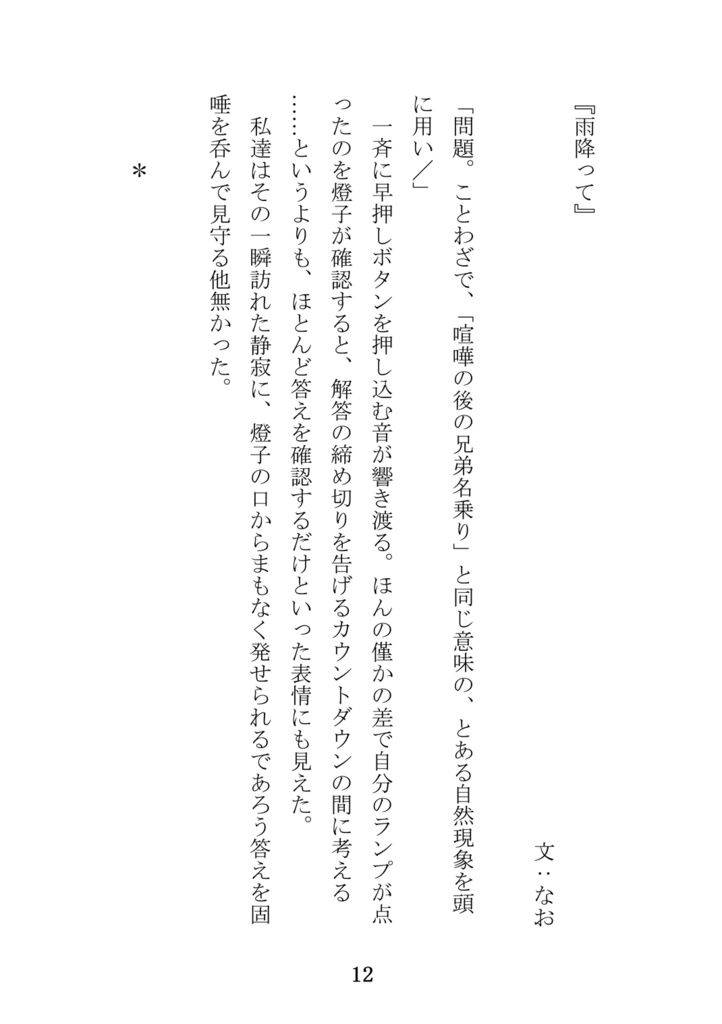 『雨降って』
文：なお
「問題。ことわざで、「喧嘩の後の兄弟名乗り」と同じ意味の、とある自然現象を頭
に用い／」
　一斉に早押しボタンを押し込む音が響き渡る。ほんの僅かの差で自分のランプが点
ったのを燈子が確認すると、解答の締め切りを告げるカウントダウンの間に考える
……というよりも、ほとんど答えを確認するだけといった表情にも見えた。
　私達はその一瞬訪れた静寂に、燈子の口からまもなく発せられるであろう答えを固
唾を呑んで見守る他無かった。
＊
12